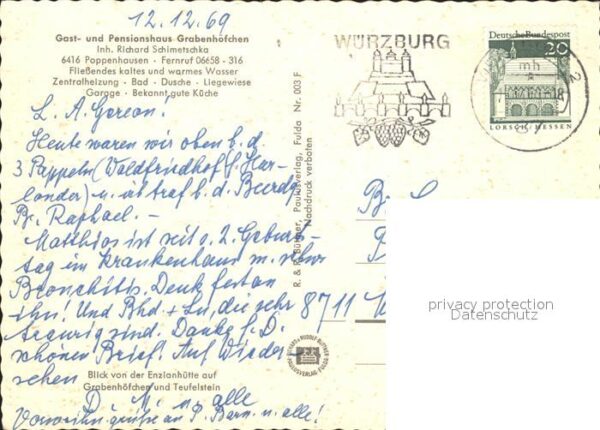 12.12.69
Gast- und Pensionshaus Grabenhöfchen
Inh. Richard Schimetschka
6416 Poppenhausen - Fernruf 06658 - 316
Fließendes kaltes und warmes Wasser
Zentralheizung - Bad - Dusche - Liegewiese
Garage - Bekannt gute Küche
L. A. Gereon!
Heute waren wir oben b. d.
3 Pappeln (Waldfriedhof f. Har-
lander) u. ich traf b. d. Beerdg.
Br. Raphael. -
Matthias ist seit s. 2. Geburts-
tag im Krankenhaus m. schw.
Bronchitis. Denk fest an
ihn! Und Bhd. + Lu, die sehr
traurig sind. Danke f. D.
schönen Brief! Auf Wieder
sehen
Blick von der Enzianhütte auf
Grabenhöfchen und Teufelstein
D. M. u. alle
Vorweihn. grüße an P. Bern. u. alle!
R. & R. Büttner, Paulusverlag, Fulda Nr. 003 F
Nachdruck verboten
WÜRZBURG
Deutsche Bundespost
20
LORSCH/HESSEN
mb
2
B
P
8711
privacy protection
Datenschutz